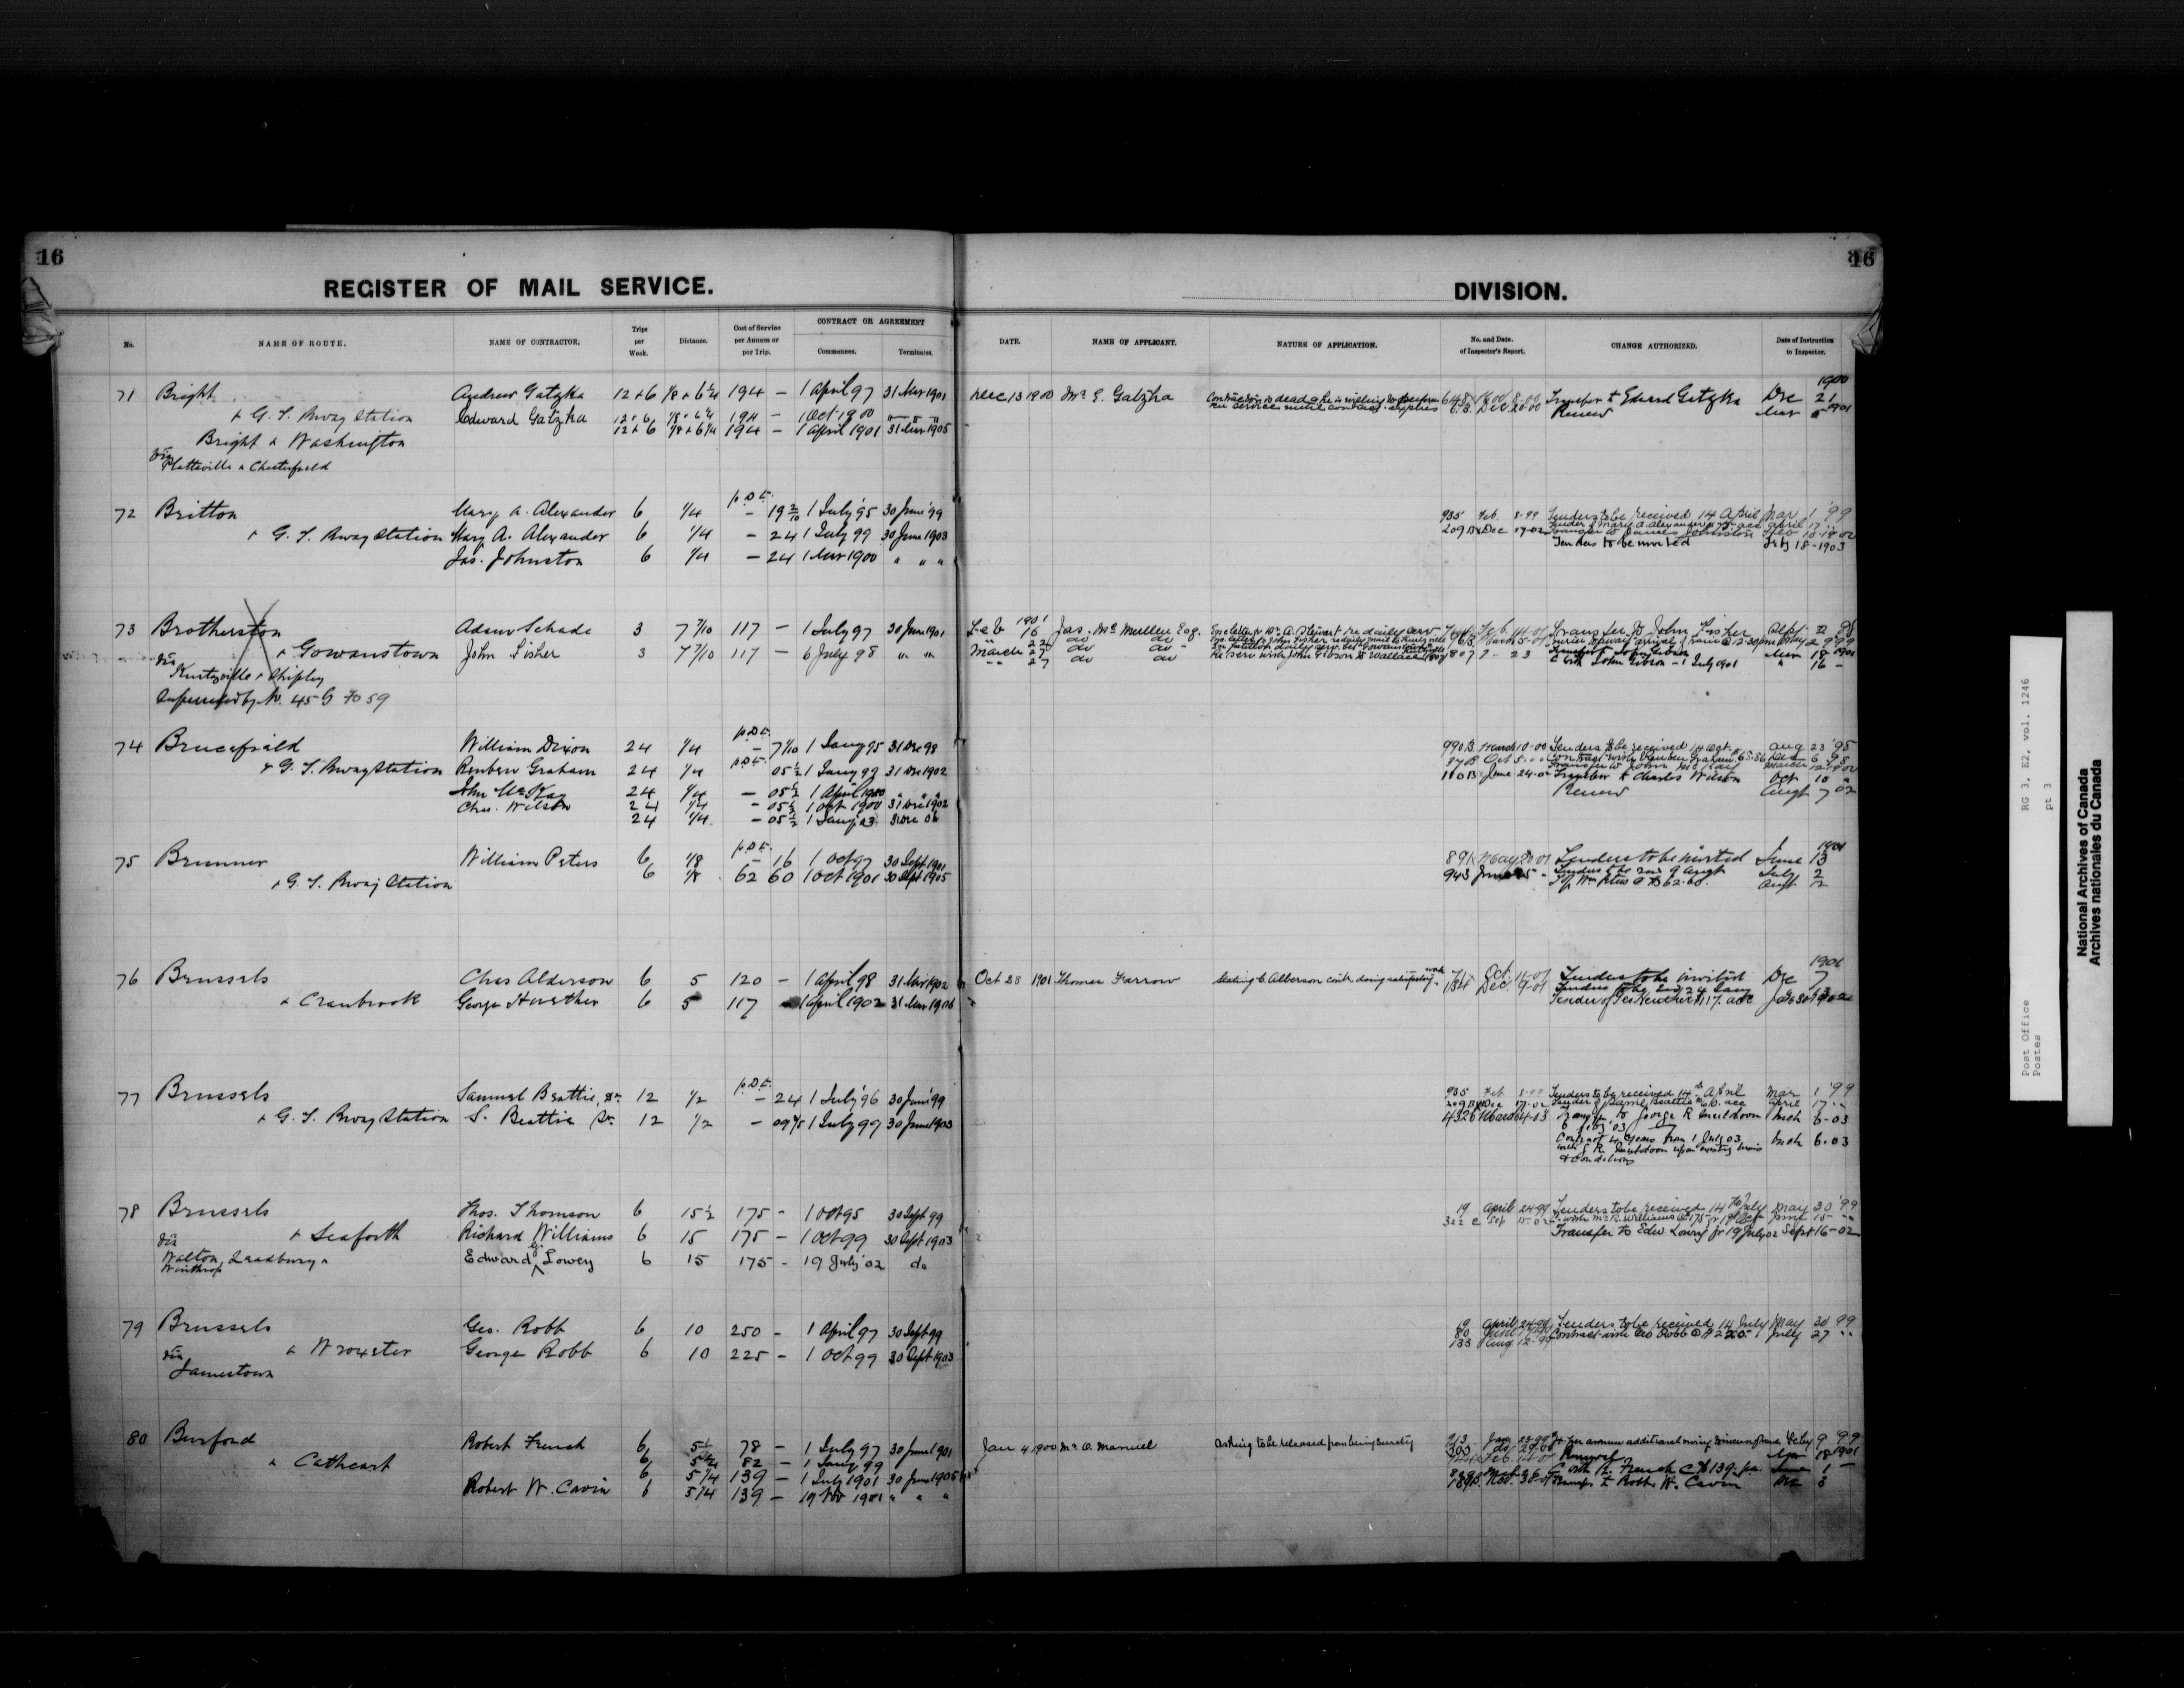 16
REGISTER OF MAIL SERVICE.
No. NAME OF ROUTE. NAME OF CONTRACTOR. Trips per Week. Distance. Cost of Service per Annum or per Trip. CONTRACT OR AGREEMENT Commences. Terminates.
71 Bright Andrew Gatzka 12+6 1/8+6 1/4 194 — 1 April 97 31 Mar 1901
& G. T. Rway Station Edward Gatzka 12+6 1/8+6 1/4 194 — 1 Oct 1900 " " "
Bright & Washington 12+6 1/8+6 1/4 194 — 1 April 1901 31 Mar 1905
via Platteville & Chesterfield
72 Britton Mary A. Alexander 6 1/4 p.D.t. — 19 2/10 1 July '95 30 June '99
& G. T. Rway Station Mary A. Alexander 6 1/4 — 24 1 July 99 30 June 1903
Jas. Johnston 6 1/4 — 24 1 Mar 1900 " " "
73 Brotherston Adam Schade 3 7 7/10 117 — 1 July 97 30 June 1901
& Gowanstown John Fisher 3 7 7/10 117 — 6 July 98 " "
via Kurtzville & Shipley
Superseded by No. 45 G Fo 59
74 Brucefield William Dixon 24 1/4 p.D.t. — 7 1/10 1 Jany 95 31 Dec 98
& G. T. Rway Station Reuben Graham 24 1/4 p.D.t. 05 1/2 1 Jany 99 31 Dec 1902
John McKay 24 1/4 — 05 1/2 1 April 1900 " " "
Chas. Wilson 24 1/4 — 05 1/2 1 Oct 1900 31 Dec 1902
24 1/4 — 05 1/2 1 Jany 03 31 Dec 06
75 Brunner William Peters 6 1/8 p.D.t. — 16 1 Oct 97 30 Sept 1901
& G. T. Rway Station 6 1/8 62 60 1 Oct 1901 30 Sept 1905
76 Brussels Chas Alderson 6 5 120 — 1 April 98 31 Mar 1902
& Cranbrook George Huether 6 5 117 1 April 1902 31 Mar 1906
77 Brussels Samuel Beattie, Sr. 12 1/2 p.D.t. — 24 1 July '96 30 June '99
& G. T. Rway Station S. Beattie Sr. 12 1/2 — 09 4/5 1 July 99 30 June 1903
78 Brussels Thos. Thomson 6 15 1/2 175 - 1 Oct 95 30 Sept 99
& Seaforth Richard Williams 6 15 175 — 1 Oct 99 30 Sept 1903
via Walton, Leadbury & Winthrop Edward Lowery 6 15 175 - 19 July '02 do
79 Brussels Geo. Robb 6 10 250 - 1 April 97 30 Sept 99
& Wroxeter George Robb 6 10 225 - 1 Oct 99 30 Sept 1903
via Jamestown
80 Burford Robert French 6 5 1/2 78 — 1 July 97 30 June 1901
& Cathcart 6 5 1/4 82 — 1 Jany 99
6 5 1/4 139 — 1 July 1901 30 June 1905
Robert W. Cavin 6 5 1/4 139 — 19 Nov 1901 " " "
16
DIVISION.
DATE. NAME OF APPLICANT. NATURE OF APPLICATION. No. and Date. of Inspector's Report. CHANGE AUTHORIZED. Date of Instruction to Inspector.
Dec 13 1900 Mr E. Gatzka Contractor is dead & he is willing to perform the service until contract expires Transfer to Edward Gatzka Dec 21 1900
Renew Mar 5 1901
935 Feb. 8-99 Tenders to be received 14 April Mar 1 '99
209 B Dec 17-02 Tender of Marie A Alexander acc April 17 "
Transfer to James Johnston Feb 10 1900
Tenders to be invited Feby 18-1903
Feb 16 1901 Jas. McMullen Esq. Transfer to John Fisher Sept 2 98
" 22 do do
March 27 do do Transfer to John Gibson Mar 18 1901
" 27 do do 807 " 23 C with John Gibson - 1 July 1901 " 16 -
990 B. March 10-00 Tenders to be received 14 Oct. Aug 23 '95
Transfer to John McKay March 12 1900
110 B June 24-02 Transfer to Charles Wilson Oct 10 "
Renew Augt 7 02
891 May 20 01 Tenders to be invited June 13 1901
943 June 25 - Tenders to be recd 9 Augt July 2
Wm Peters @ $62.60. Augt 12
Oct 28 1901 Thomas Farrow Stating C Alderson contr. doing satisfactory work Tenders to be invited Dec 7 1901
Tenders to be recd 24 Jany
Tender of Geo Huether $117. acc Jan 30 1902
935 Feb. 8-99 Tenders to be received 14th April Mar 1 '99
209 B Dec 17-02 Tender of Saml Beattie acc April 17 "
432 B March 4-03 Transfer to George R Muldoon Mch 6-03
6 Feby '03
Contract 4 years from 1 July 03 with G R Muldoon upon existing terms & conditions Mch 6.03
19 April 24-99 Tenders to be received 14th July May 30 '99
322 C Sep 15-02 C with Mr R. Williams @ 175 fr 1st Oct June 15 "
Transfer to Edw. Lowry fr 19 July 02 Sept 16-02
19 April 24-99 Tenders to be received 14 July May 30 99
80 Contract with Geo Robb @ $225 July 27 "
133 Aug 12-99
Jan 4 1900 Mr O. Manuel Asking to be released from being surety $4 per annum additional Feby 9 99
Renew Apr 18 1901
C with R. French @ $139- pa. June 1 -
189 B Nov. 30-01 Transfer to Robt W. Cavin Dec 3
Post Office RG 3, E2, vol. 1246
Postes pt 3
National Archives of Canada
Archives nationales du Canada